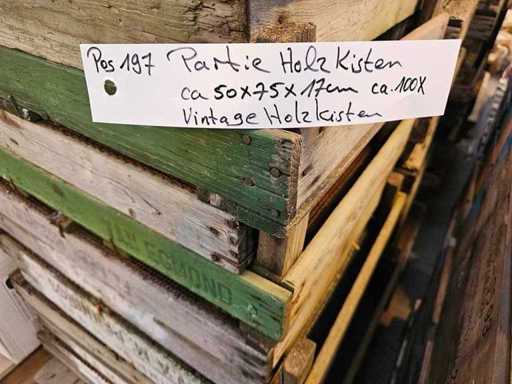 Pos 197 Partie Holzkisten
ca 50x75x17cm ca. 100X
Vintage Holzkisten
EGMOND